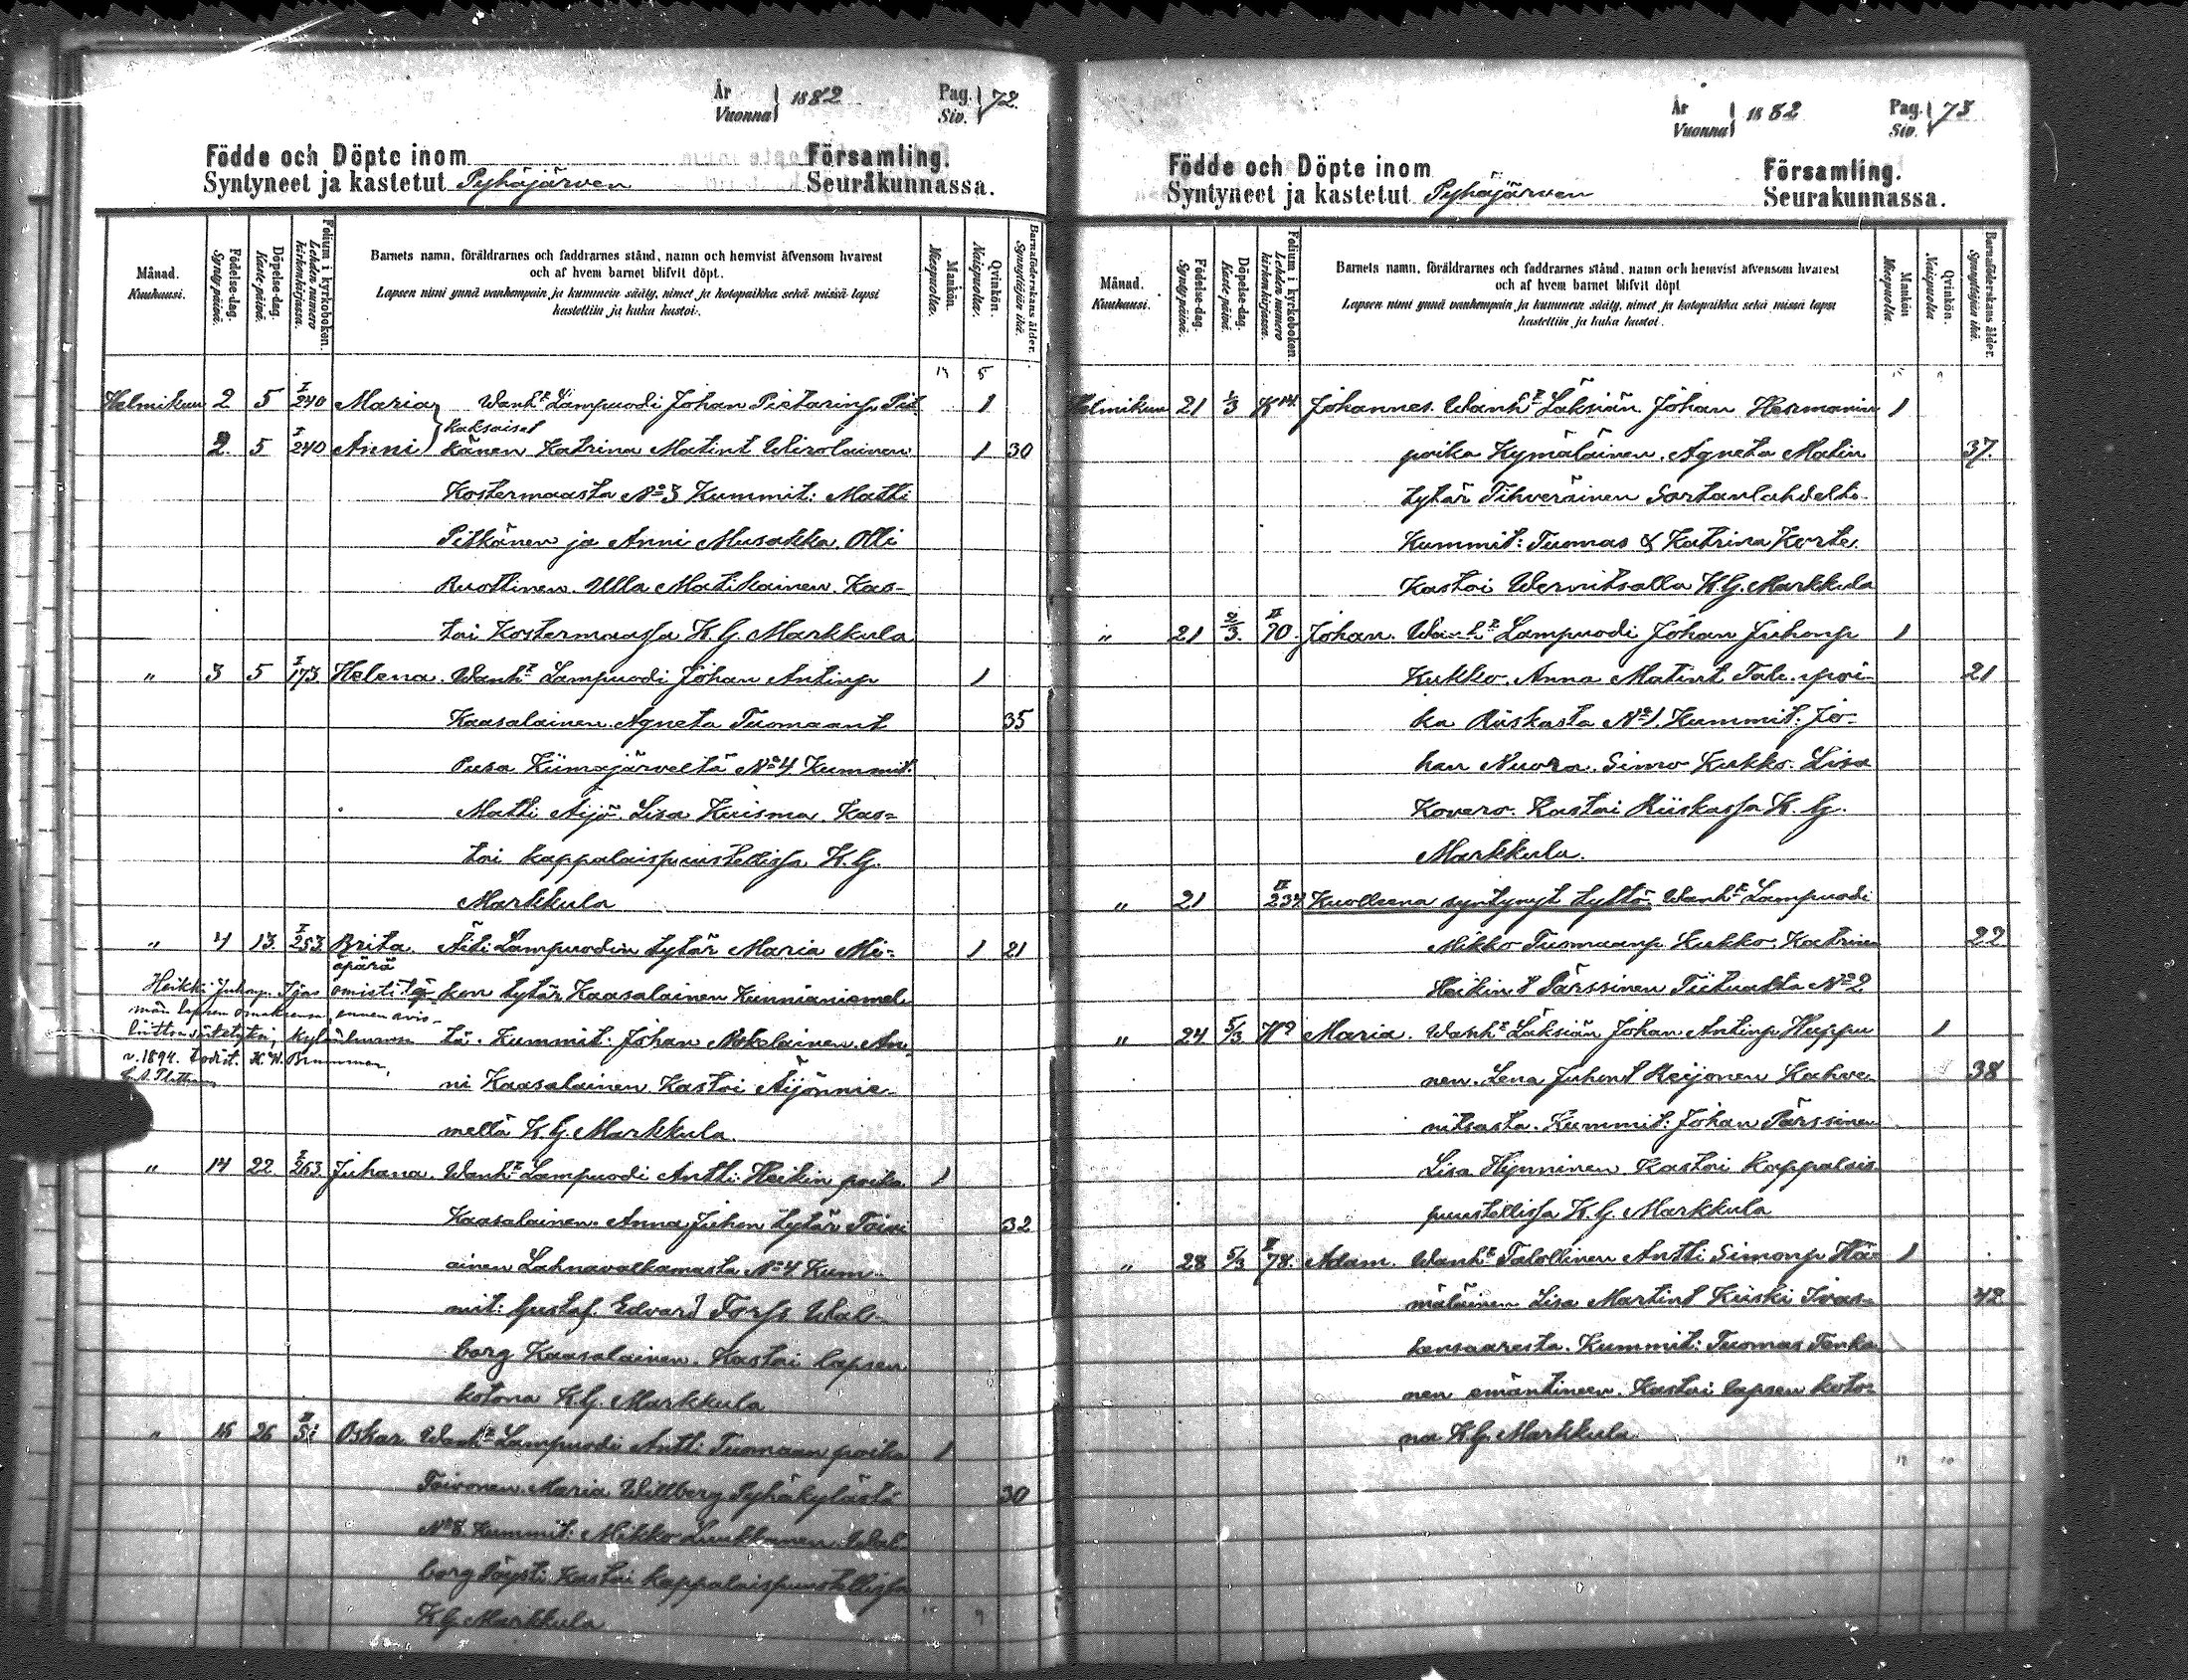 År
Vuonna 1882
Pag.
Siv. 72
Födde och Döpte inom Församling.
Syntyneet ja kastetut Pyhäjärven Seurakunnassa.
Månad.
Kuukausi.
Födelse-dag.
Syntypäivä.
Döpelse-dag.
Kaste-päivä.
Folium i kyrkoboken.
Lehden numero kirkonkirjassa.
Barnets namn, föräldrarnes och faddrarnes stånd, namn och hemvist äfvensom hvarest
och af hvem barnet blifvit döpt.
Lapsen nimi ynnä vanhempain ja kummein sääty, nimet ja kotopaikka sekä missä lapsi
kastettiin ja kuka kastoi.
Mankön.
Miespuolta.
Qvinkön.
Naispuolta.
Barnaföderskans ålder.
Synnyttäjän ikä.
Helmikuu 2 5 I 240 Maria Wanht Lampuodi Johan Pietarinp. Pit 1
kaksoiset
2. 5 I 240 Anni känen Katrina Matint Wirolainen 1 30
Kostermaasta No 3 Kummit: Matti
Pitkänen ja Anni Musakka. Olli
Ruottinen. Ulla Matikainen. Kas-
toi Kostermaassa K. G. Markkula
" 3 5 I 173 Helena. Wanht Lampuodi Johan Antinp 1
Kaasalainen. Agneta Tuomaant 35
Pusa Kiimajärveltä No 4 Kummit.
Matti Äijö. Lisa Kuisma. Kas-
toi kappalaispuustellissa K. G.
Markkula
" 4 13. I 253 Brita. Äiti Lampuodin tytär Maria Mi- 1 21
äpärä
kon tytär Kaasalainen Kunnianiemel-
Heikki Juhonp. Ijäs omisti tä-
män lapsen omaksensa, ennen avio-
tä. Kummit: Johan Mökelainen. An-
v. 1894. todist. K. W. Brummer,
ni Kaasalainen. Kastoi Äijönnie-
mellä K. G. Markkula.
" 14 22 I 263 Juhana. Wanht Lampuodi Antti Heikin poika 1
Kaasalainen. Anna Juhon tytär Toivi 32
ainen Lahnavalkamasta No 4 Kum-
mit: Gustaf Edvard Forss Wal-
borg Kaasalainen. Kastoi lapsen
kotona K. G. Markkula
" 15 26 II 51 Oskar Wanht Lampuodi Antti Tuomaan poika 1
Toivonen. Maria Willberg Pyhäkylästä 30
No 8 Kummit: Mikko Luukkanen. Wal-
borg Löysti. Kastoi kappalaispuustellissa
K. G. Markkula
År
Vuonna 1882
Pag.
Siv. 73
Födde och Döpte inom Församling.
Syntyneet ja kastetut Pyhäjärven Seurakunnassa.
Månad.
Kuukausi.
Födelse-dag.
Syntypäivä.
Döpelse-dag.
Kaste-päivä.
Folium i kyrkoboken.
Lehden numero kirkonkirjassa.
Barnets namn, föräldrarnes och faddrarnes stånd, namn och hemvist äfvensom hvarest
och af hvem barnet blifvit döpt
Lapsen nimi ynnä vanhempain ja kummein sääty, nimet ja kotopaikka sekä missä lapsi
kastettiin ja kuka kastoi.
Mankön
Miespuolta.
Qvinkön.
Naispuolta
Barnaföderskans ålder.
Synnyttäjän ikä.
Helmikuu 21 1/3 K 14. Johannes. Wanht Läksiän Johan Hermanin 1
poika Kymäläinen. Agneta Matin 37.
tytär Tihveräinen Sortanlahdelta.
Kummit: Tuomas & Katrina Korte.
Kastoi Wernitsalla K. G. Markkula
" 21 2/3. II 70. Johan. Wanht Lampuodi Johan Juhonp 1
Kukko. Anna Matint Tale. poi- 21
ka Riiskasta No 1. Kummit: Jo-
han Nuora. Simo Kukko. Lisa
Kovero. Kastoi Riiskassa K. G.
Markkula.
" 21 II 234 Kuolleena syntynyt tyttö. Wanht Lampuodi
Mikko Tuomaanp Kukko. Katrina 22
Heikint Pärssinen Tiitualta No 2
" 24 5/3 K 9 Maria. Wanht Läksiän Johan Antinp Huppo 1
nen. Lena Juhont Reijonen Kahve- 38
nitsasta. Kummit: Johan Pärssinen
Lisa Hynninen. Kastoi kappalais
puustellissa K. G. Markkula
" 28 5/3 II 78. Adam. Wanht Talollinen Antti Simonp Hä- 1
mäläinen Lisa Martint Kiiski Ivas- 42
kensaaresta. Kummit: Tuomas Tenka-
nen emäntineen. Kastoi lapsen koto-
na K. G. Markkula